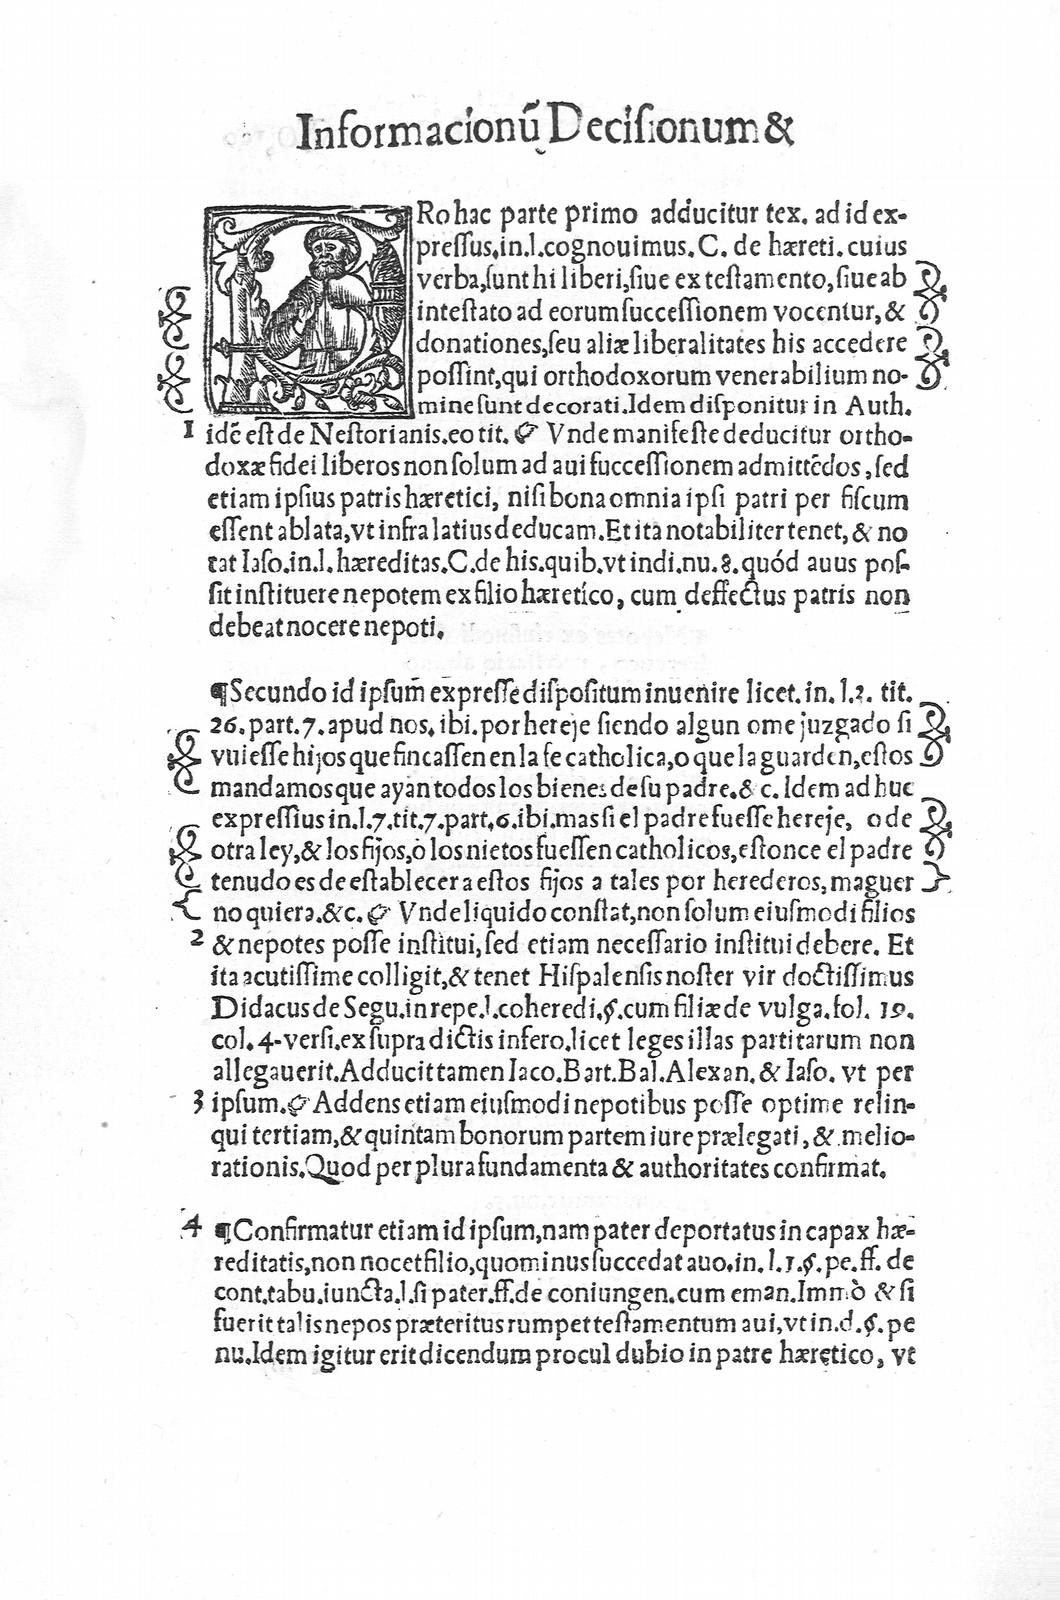 Informacionũ Decisionum &
PRo hac parte primo adducitur tex. ad id ex-
pressus.in.l.cognouimus. C. de hæreti. cuius
verba,sunt hi liberi,siue ex testamento,siue ab
intestato ad eorum successionem vocentur, &
donationes,seu aliæ liberalitates his accedere
possint,qui orthodoxorum venerabilium no-
mine sunt decorati.Idem disponitur in Auth.
1 idẽ est de Nestorianis.eo tit. ☞ Vnde manifeste deducitur ortho-
doxæ fidei liberos non solum ad aui successionem admittẽdos, sed
etiam ipsius patris hæretici, nisi bona omnia ipsi patri per fiscum
essent ablata,vt infra latius deducam.Et ita notabiliter tenet, & no
tat Iaso.in.l. hæreditas.C.de his.quib.vt indi.nu.8.quód auus pos-
sit instituere nepotem ex filio hæretico, cum deffectus patris non
debeat nocere nepoti.
¶Secundo id ipsum expresse dispositum inuenire licet. in. l.2. tit.
26.part.7.apud nos.ibi.por hereje siendo algun ome juzgado si
vuiesse hijos que fincassen en la fe catholica,o que la guarden,estos
mandamos que ayan todos los bienes de su padre.& c. Idem adhuc
expressius in.l.7.tit.7.part.6.ibi.mas si el padre fuesse hereje, o de
otra ley,& los fijos,ò los nietos fuessen catholicos,estonce el padre
tenudo es de establecer a estos fijos a tales por herederos,maguer
no quiera.&c. ☞ Vnde liquido constat,non solum eiusmodi filios
2 & nepotes posse institui,sed etiam necessario institui debere. Et
ita acutissime colligit,& tenet Hispalensis noster vir doctissimus
Didacus de Segu.in repe.l.coheredi.§.cum filiæ de vulga.fol. 19.
col.4-versi.ex supra dictis infero.licet leges illas partitarum non
allegauerit.Adducit tamen Iaco.Bart.Bal.Alexan. & Iaso. vt per
3 ipsum.☞ Addens etiam eiusmodi nepotibus posse optime relin-
qui tertiam,& quintam bonorum partem iure prælegati, & melio-
rationis.Quod per plura fundamenta & authoritates confirmat.
4 ¶Confirmatur etiam id ipsum,nam pater deportatus in capax hæ-
reditatis,non nocet filio,quominus succedat auo.in.l.1.§.pe.ff. de
cont.tabu.iuncta.l.si pater.ff.de coniungen.cum eman.Immò & si
fuerit talis nepos præteritus rumpet testamentum aui,vt in.d.§.pe
nu.Idem igitur erit dicendum procul dubio in patre hæretico, vt